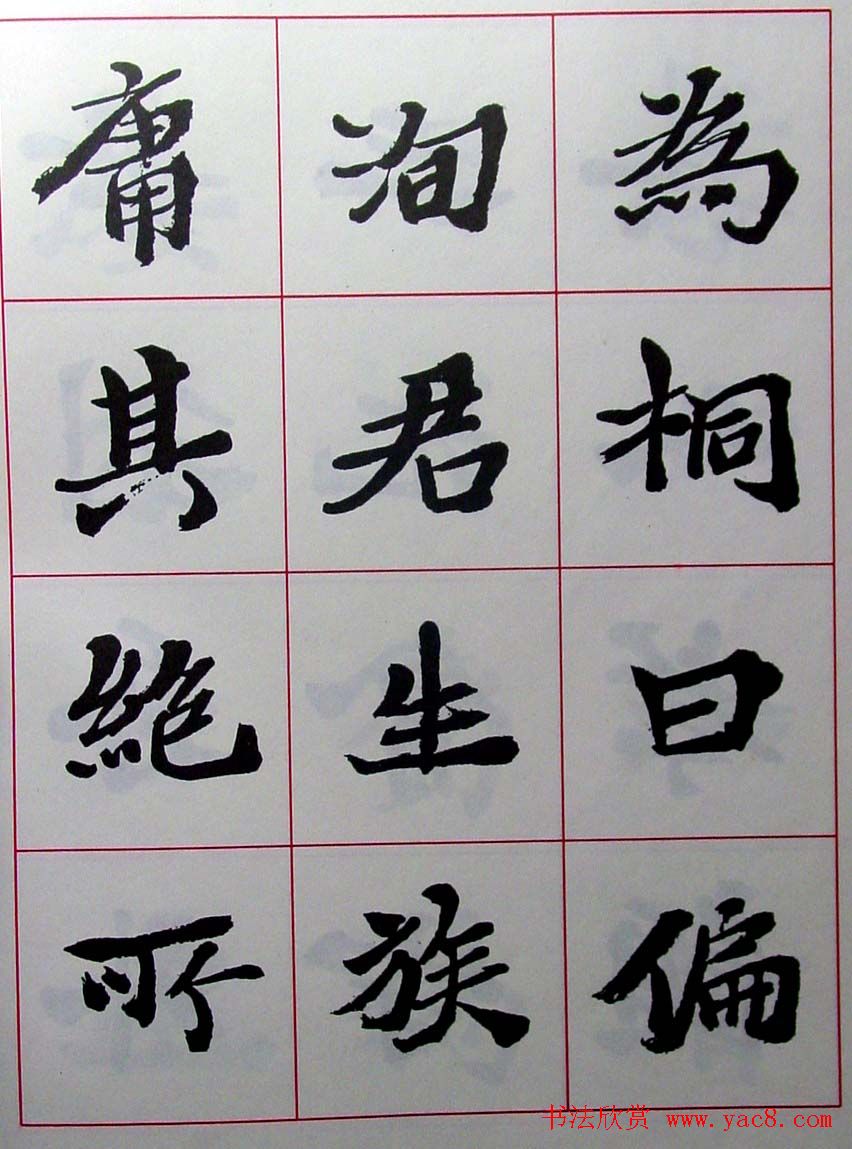 為桐曰偏
洵君生族
庸其絶所
书法欣赏 www.yac8.com